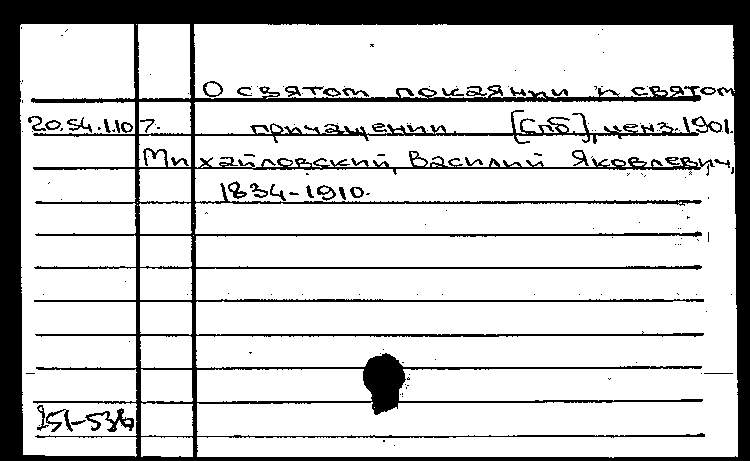 О святом покаянии и святом
20.54.1.107. причащении. [Спб.], ценз. 1901.
Михайловский, Василий Яковлевич,
1834-1910.